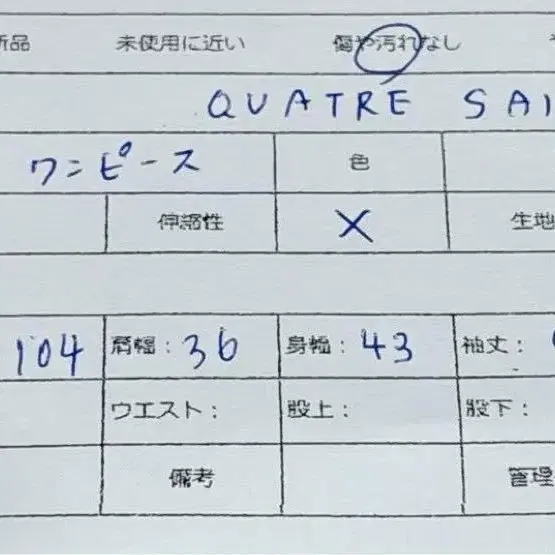 新品 未使用に近い 傷や汚れなし
QUATRE SAI
ワンピース 色
伸縮性 X 生地
104 肩幅: 36 身幅: 43 袖丈:
ウエスト: 股上: 股下:
備考 管理